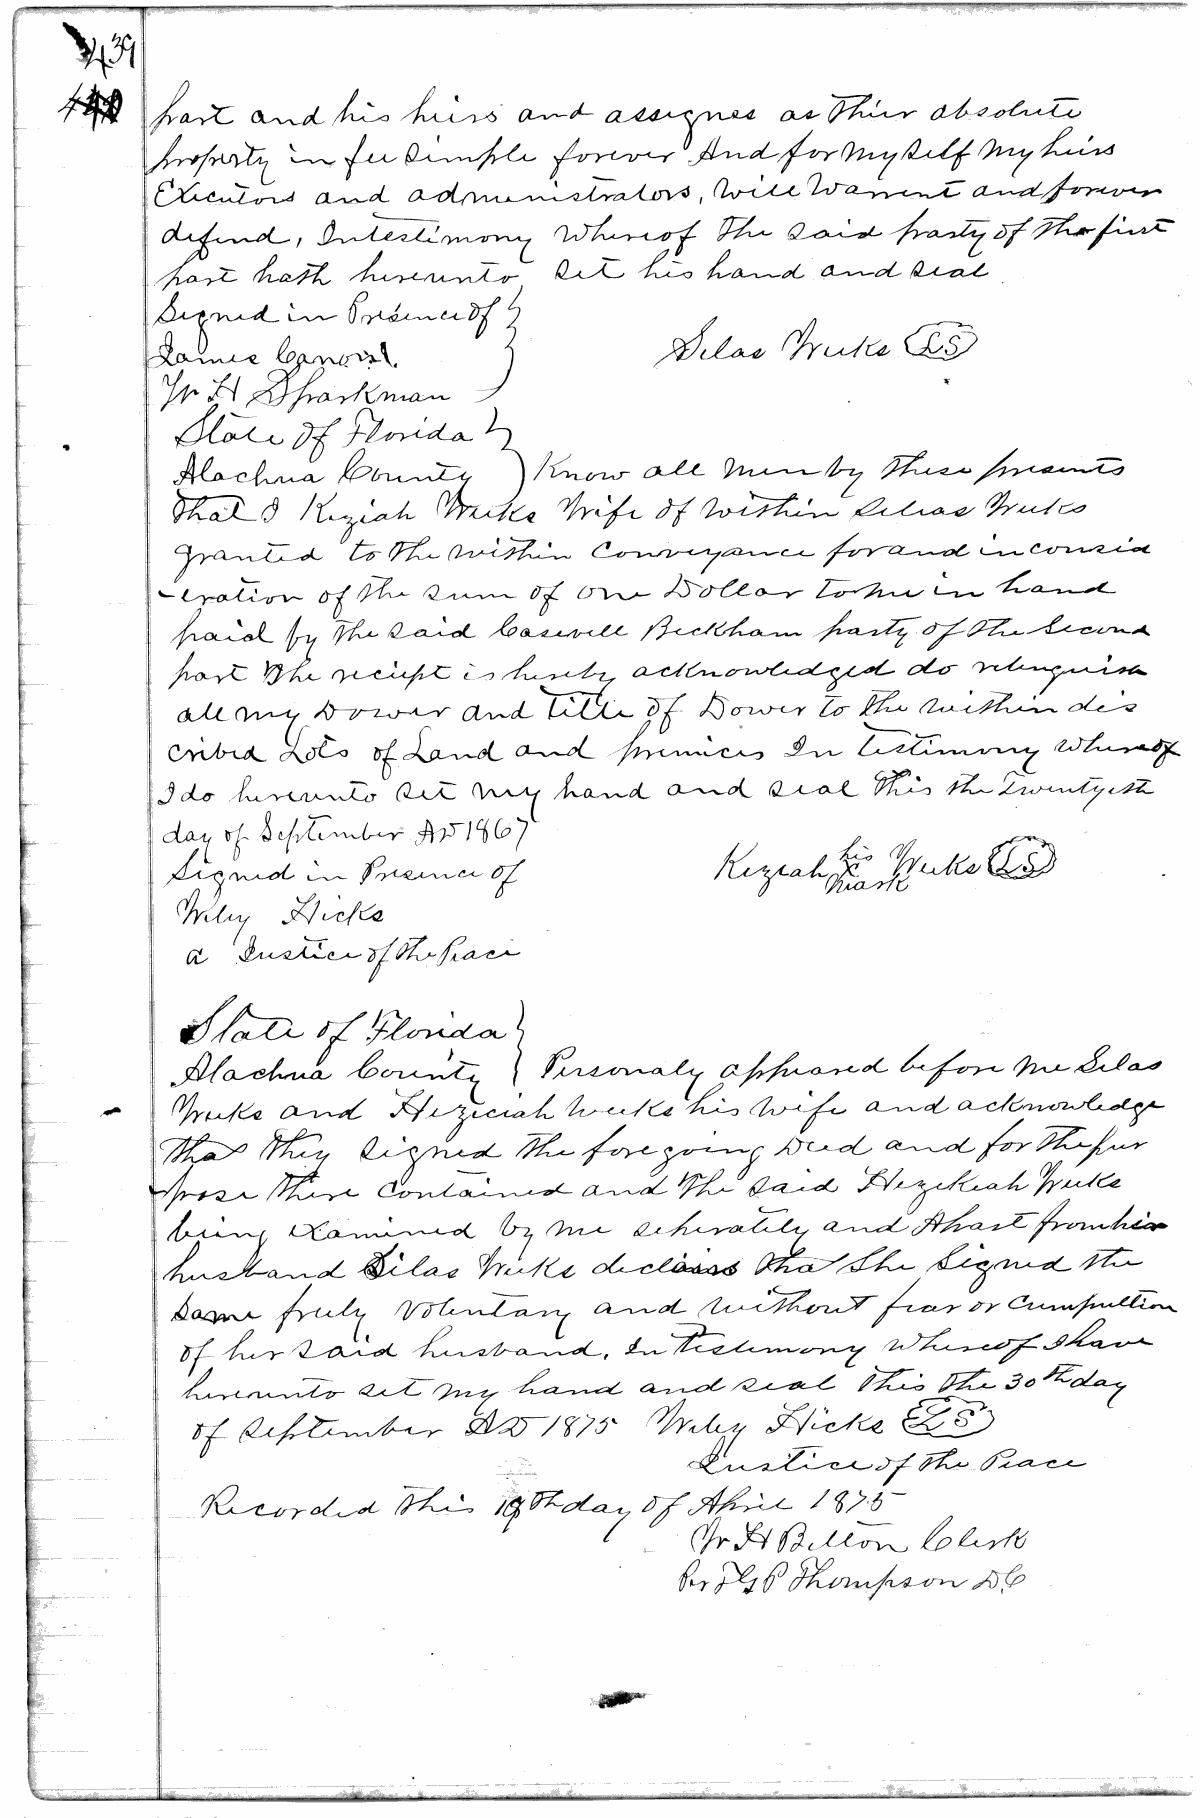 439
part and his heirs and assignes as thier absolute
property in fee simple forever And for myself my heirs
Executors and administrators, will Warrent and forever
defend, Intestimony Whereof the said party of the first
part hath hereunto set his hand and seal
Signed in Presence of
James
Silas Weeks LS
W H Sparkman
State of Florida
Alachua County Know all men by these presents
that I Keziah Weeks Wife of within Selias Weeks
granted to the within Conveyance for and in consid
-eration of the sum of one Dollar to me in hand
paid by the said Casevell Beckham party of the Second
part the reciept is hereby acknowledged do relenquish
all my Dower and title of Dower to the within dis
cribed Lots of Land and premices In testimony whereof
I do hereunto set my hand and seal this the Twentyeth
day of September AD 1867
Signed in Presence of
Keziah his mark Weeks LS
Wiley Hicks
a Justice of the Peace
State of Florida
Alachua County Personaly appeared before me Silas
Weeks and Hezeciah Weeks his wife and acknowledge
that they signed the foregoing Deed and for the pur
pose there contained and the said Hezekiah Weeks
being examined by me seperately and Apart from his
husband Silas Weeks declairs tha She Signed the
same freely Voluntary and without fear or Cumpultion
of her said husband. In testimony whereof I have
hereunto set my hand and seal this the 30th day
of September AD 1875 Wiley Hicks LS
Justice of the Peace
Recorded this 19th day of April 1875
W H Belton Clerk
Per F G P Thompson D C